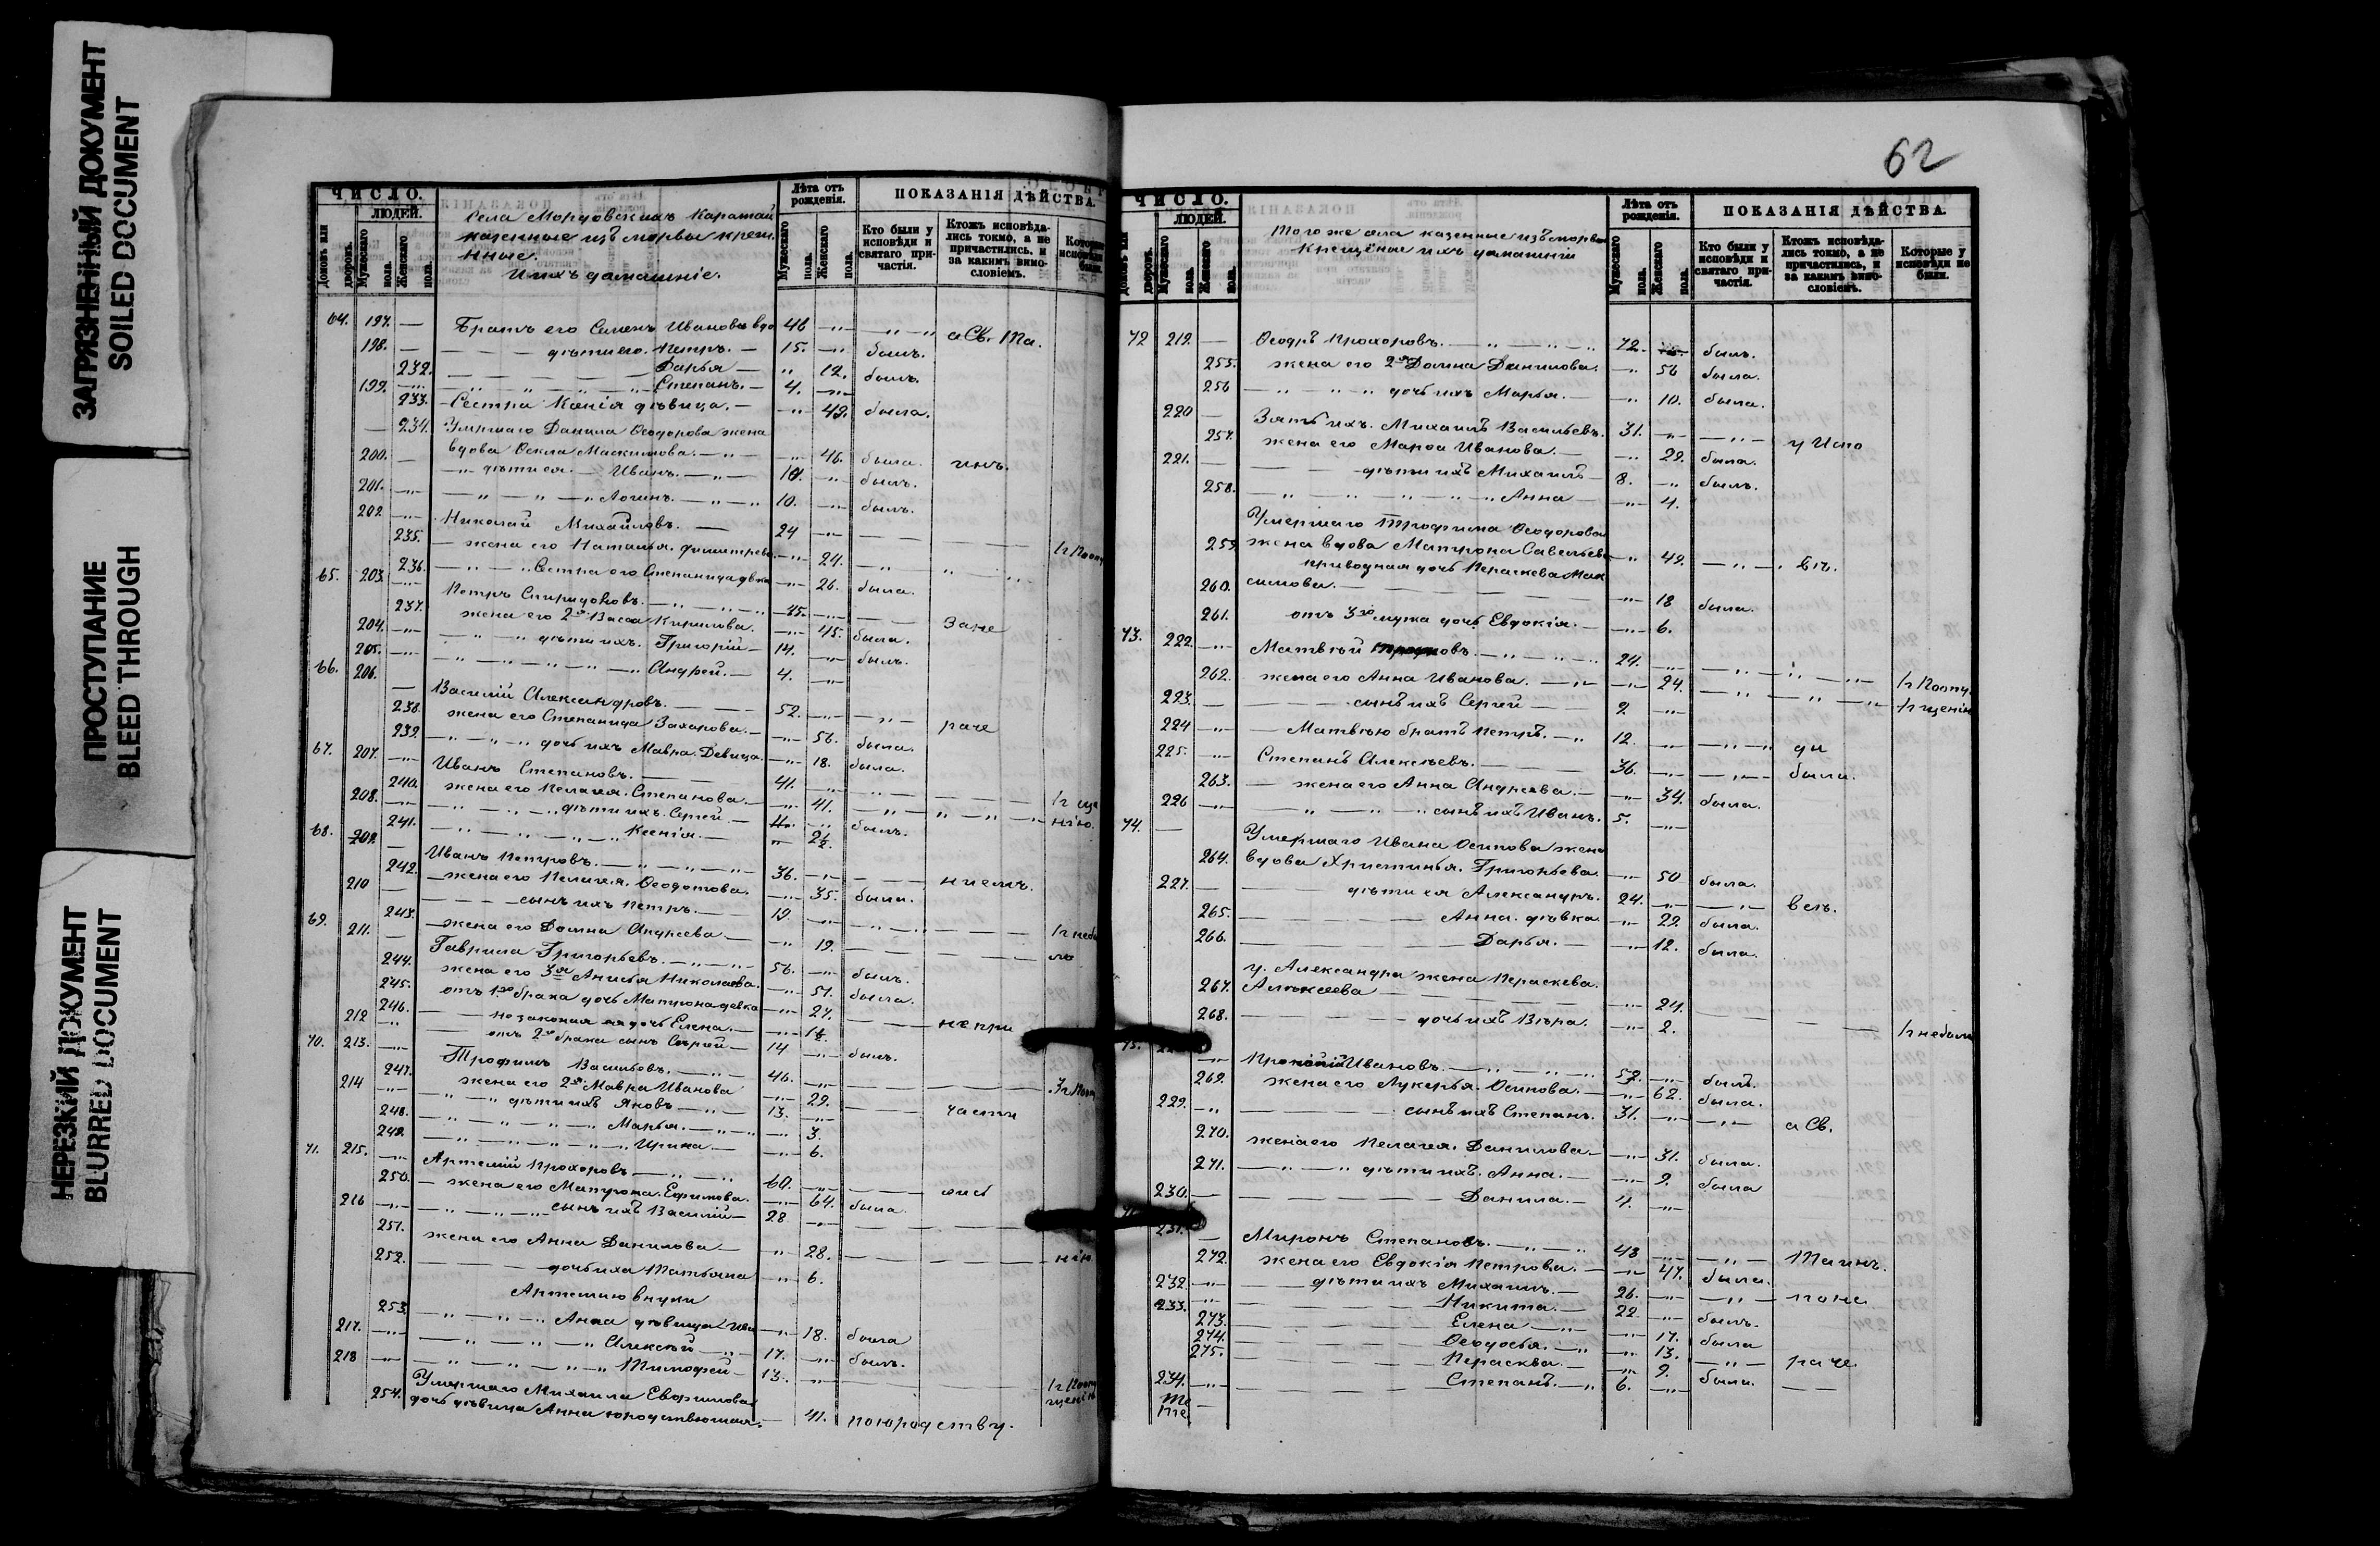 ЗАГРЯЗНЕННЫЙ ДОКУМЕНТ
SOILED DOCUMENT
ПРОСТУПАНИЕ
BLEED THROUGH
НЕРЕЗКИЙ ДОКУМЕНТ
BLURRED DOCUMENT
ЧИСЛО.
ЛЮДЕЙ.
Домовъ или дворовъ.
Мужескаго пола.
Женскаго пола.
Села Мордовскихъ Каратай
казенные изъ мордвы крещ.
нные
и ихъ домашніе.
Лѣта отъ рожденія.
Мужескаго пола.
Женскаго пола.
ПОКАЗАНІЯ ДѢЙСТВА.
Кто были у исповѣди и святаго причастія.
Ктожъ исповѣдались токмо, а не причастились, и за какимъ винословіемъ.
64. 197. — Братъ его Семенъ Ивановъ вдо 46 а Св. Та.
198. — дѣти его. Петръ. — 15. былъ.
232. Дарья — 12. былъ.
199. Степанъ. — 4.
233. Сестра Ксенія дѣвица. — 49. была.
234. Умершаго Данила Ѳеодорова жена
вдова Ѳекла Максимова. — 46. была. инъ.
200. — дѣти ея. Иванъ. былъ.
201. Логинъ. 10. былъ.
202. Николай Михайловъ. — 24
235. жена его Наталья. Димитрева. 24.
236. Сестра его Степанида двка 26. была.
65. 203. Петръ Спиридоновъ. 45. Зане
237. жена его 2я Васса Кирилова. 45. была.
204. дѣти ихъ. Григорій — 14. былъ.
205. Андрей. — 4.
66. 206. Василій Александровъ. 52. раче
238. жена его Степанида Захарова. — 56. была.
239. дочь ихъ Мавра. Девица. 18. была.
67. 207. Иванъ Степановъ. 41.
240. жена его Пелагея. Степанова. — 41.
208. дѣти ихъ. Сергей. — былъ.
241. Ксенія. — 2½.
68. 209. Иванъ Петровъ. 36. ніемъ.
242. жена его Пелагея. Ѳеодотова. 35. была.
210 — сынъ ихъ Петръ. 19.
243. жена его Домна Андреева. 19.
69. 211. Гаврила Григорьевъ. 56. былъ.
244. жена его 3я Анисья Николаева. 51. была.
245. отъ 1го брака дочь Матрона девка 27. не при
246. незаконая ея дочь Елена. — 1½.
212 отъ 2го брака сынъ Сергей — 14 былъ.
70. 213. Трофимъ Васильевъ. 46.
247. жена его 2я Мавра Иванова 29. части
214 дѣти ихъ Яковъ 13.
248. Марья. 3.
249. Ирина — 6.
71. 215. Артемій Прохоровъ 60.
250. — жена его Матрона. Ефимова. 64. была
216 сынъ ихъ Василій — 28
251. жена его Анна Данилова — 28. нію.
252. дочь ихъ Татьяна 6.
Артемію внуки
253. Анна дѣвица 18. была
217. Алексѣй 17. былъ.
218 Тимофей — 13.
Умершаго Михаила Евфимова
254. дочь дѣвица Анна юродствующая. 41. по юродству.
62
ЧИСЛО.
ЛЮДЕЙ.
Домовъ или дворовъ.
Мужескаго пола.
Женскаго пола.
Того же села казенные изъ мордвы
Крещёные и ихъ домашніи
Лѣта отъ рожденія.
Мужескаго пола.
Женскаго пола.
ПОКАЗАНІЯ ДѢЙСТВА.
Кто были у исповѣди и святаго причастія.
Ктожъ исповѣдались токмо, а не причастились, и за какимъ винословіемъ.
Которые у исповѣди не были.
72 219. — Ѳеодръ Прохоровъ. 72. былъ.
255. жена его 2я Домна Данилова. 56 была.
256 дочь ихъ Марья. — 10. была.
220 — Зять ихъ. Михаилъ Васильевъ. 31. у Испо
257. жена его Марѳа Иванова. — 29. была.
221. дѣти ихъ Михаилъ — 8. былъ.
258. Анна 4.
Умершаго Трофима Ѳеодорова
259. жена вдова Матрона Савельева 49. вѣ.
приводная дочь Пераскева Мак
260. симова. 18 была.
261. отъ 3го мужа дочь Евдокія. — 6.
73. 222. Матвѣй 24.
262. жена его Анна Иванова. 24.
223. — сынъ ихъ Сергей 2
224 Матвѣю братъ Петръ. 12. ди
225. Степанъ Алексѣевъ. 36. были.
263. жена его Анна Андреева. — 34. была.
226 сынъ ихъ Иванъ. 5.
74. — Умершаго Ивана Осипова жена
264. вдова Христинья. Григорьева. 50 была.
227. — дѣти ея Александръ. 24. весь.
265. Анна. дѣвка. 29. была.
266. Дарья. — 12. была.
у. Александра жена Пераскева.
267. Алексеева 24.
268. дочь ихъ Вѣра. 2. 1/г небыли
75. Ивановъ. былъ.
269. жена его Лукерья. Осипова. 62. была.
229. сынъ ихъ Степанъ. 31. а Св.
270. жена его Пелагея. Данилова — 31. была.
271. дѣти ихъ. Анна. — 9. была
230. Данила. — 4.
231. Миронъ Степановъ. 48 Таинъ.
272. жена его Евдокія Петрова. — 47. была.
232. дѣти ихъ Михаилъ. 26. поне
233. Никита. — 22. былъ.
273. Елена 17. была
274. Ѳеодосья. 13. раче.
275. Пераскева. 9. была.
234. Степанъ. 6.